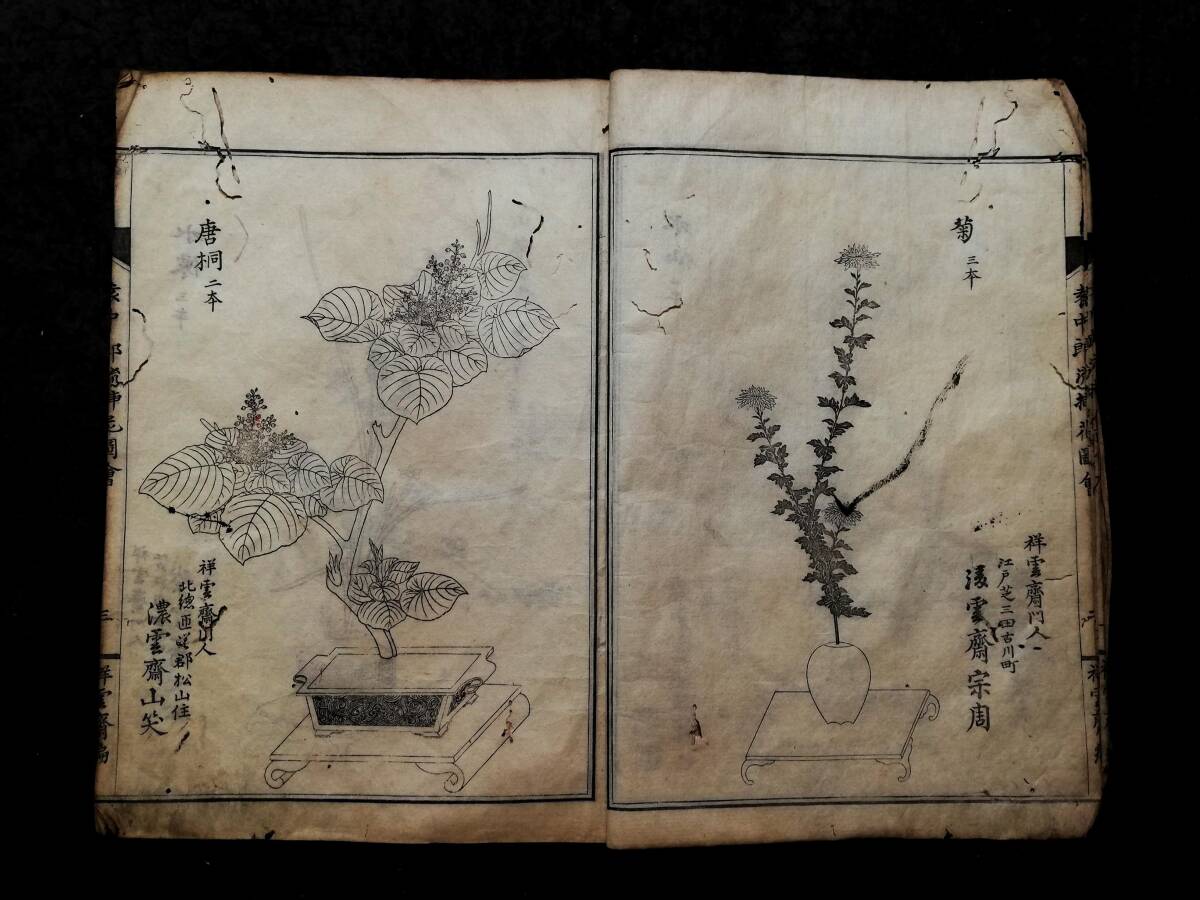 袁中郎流挿花圖會
菊 三本
祥雲齋門人
江戸芝三田古川町
淩雲齋宗周
唐桐 二本
祥雲齋門人
北總匝瑳郡松山住
濃雲齋山笑
袁中郎流挿花圖會
三
祥雲齋編